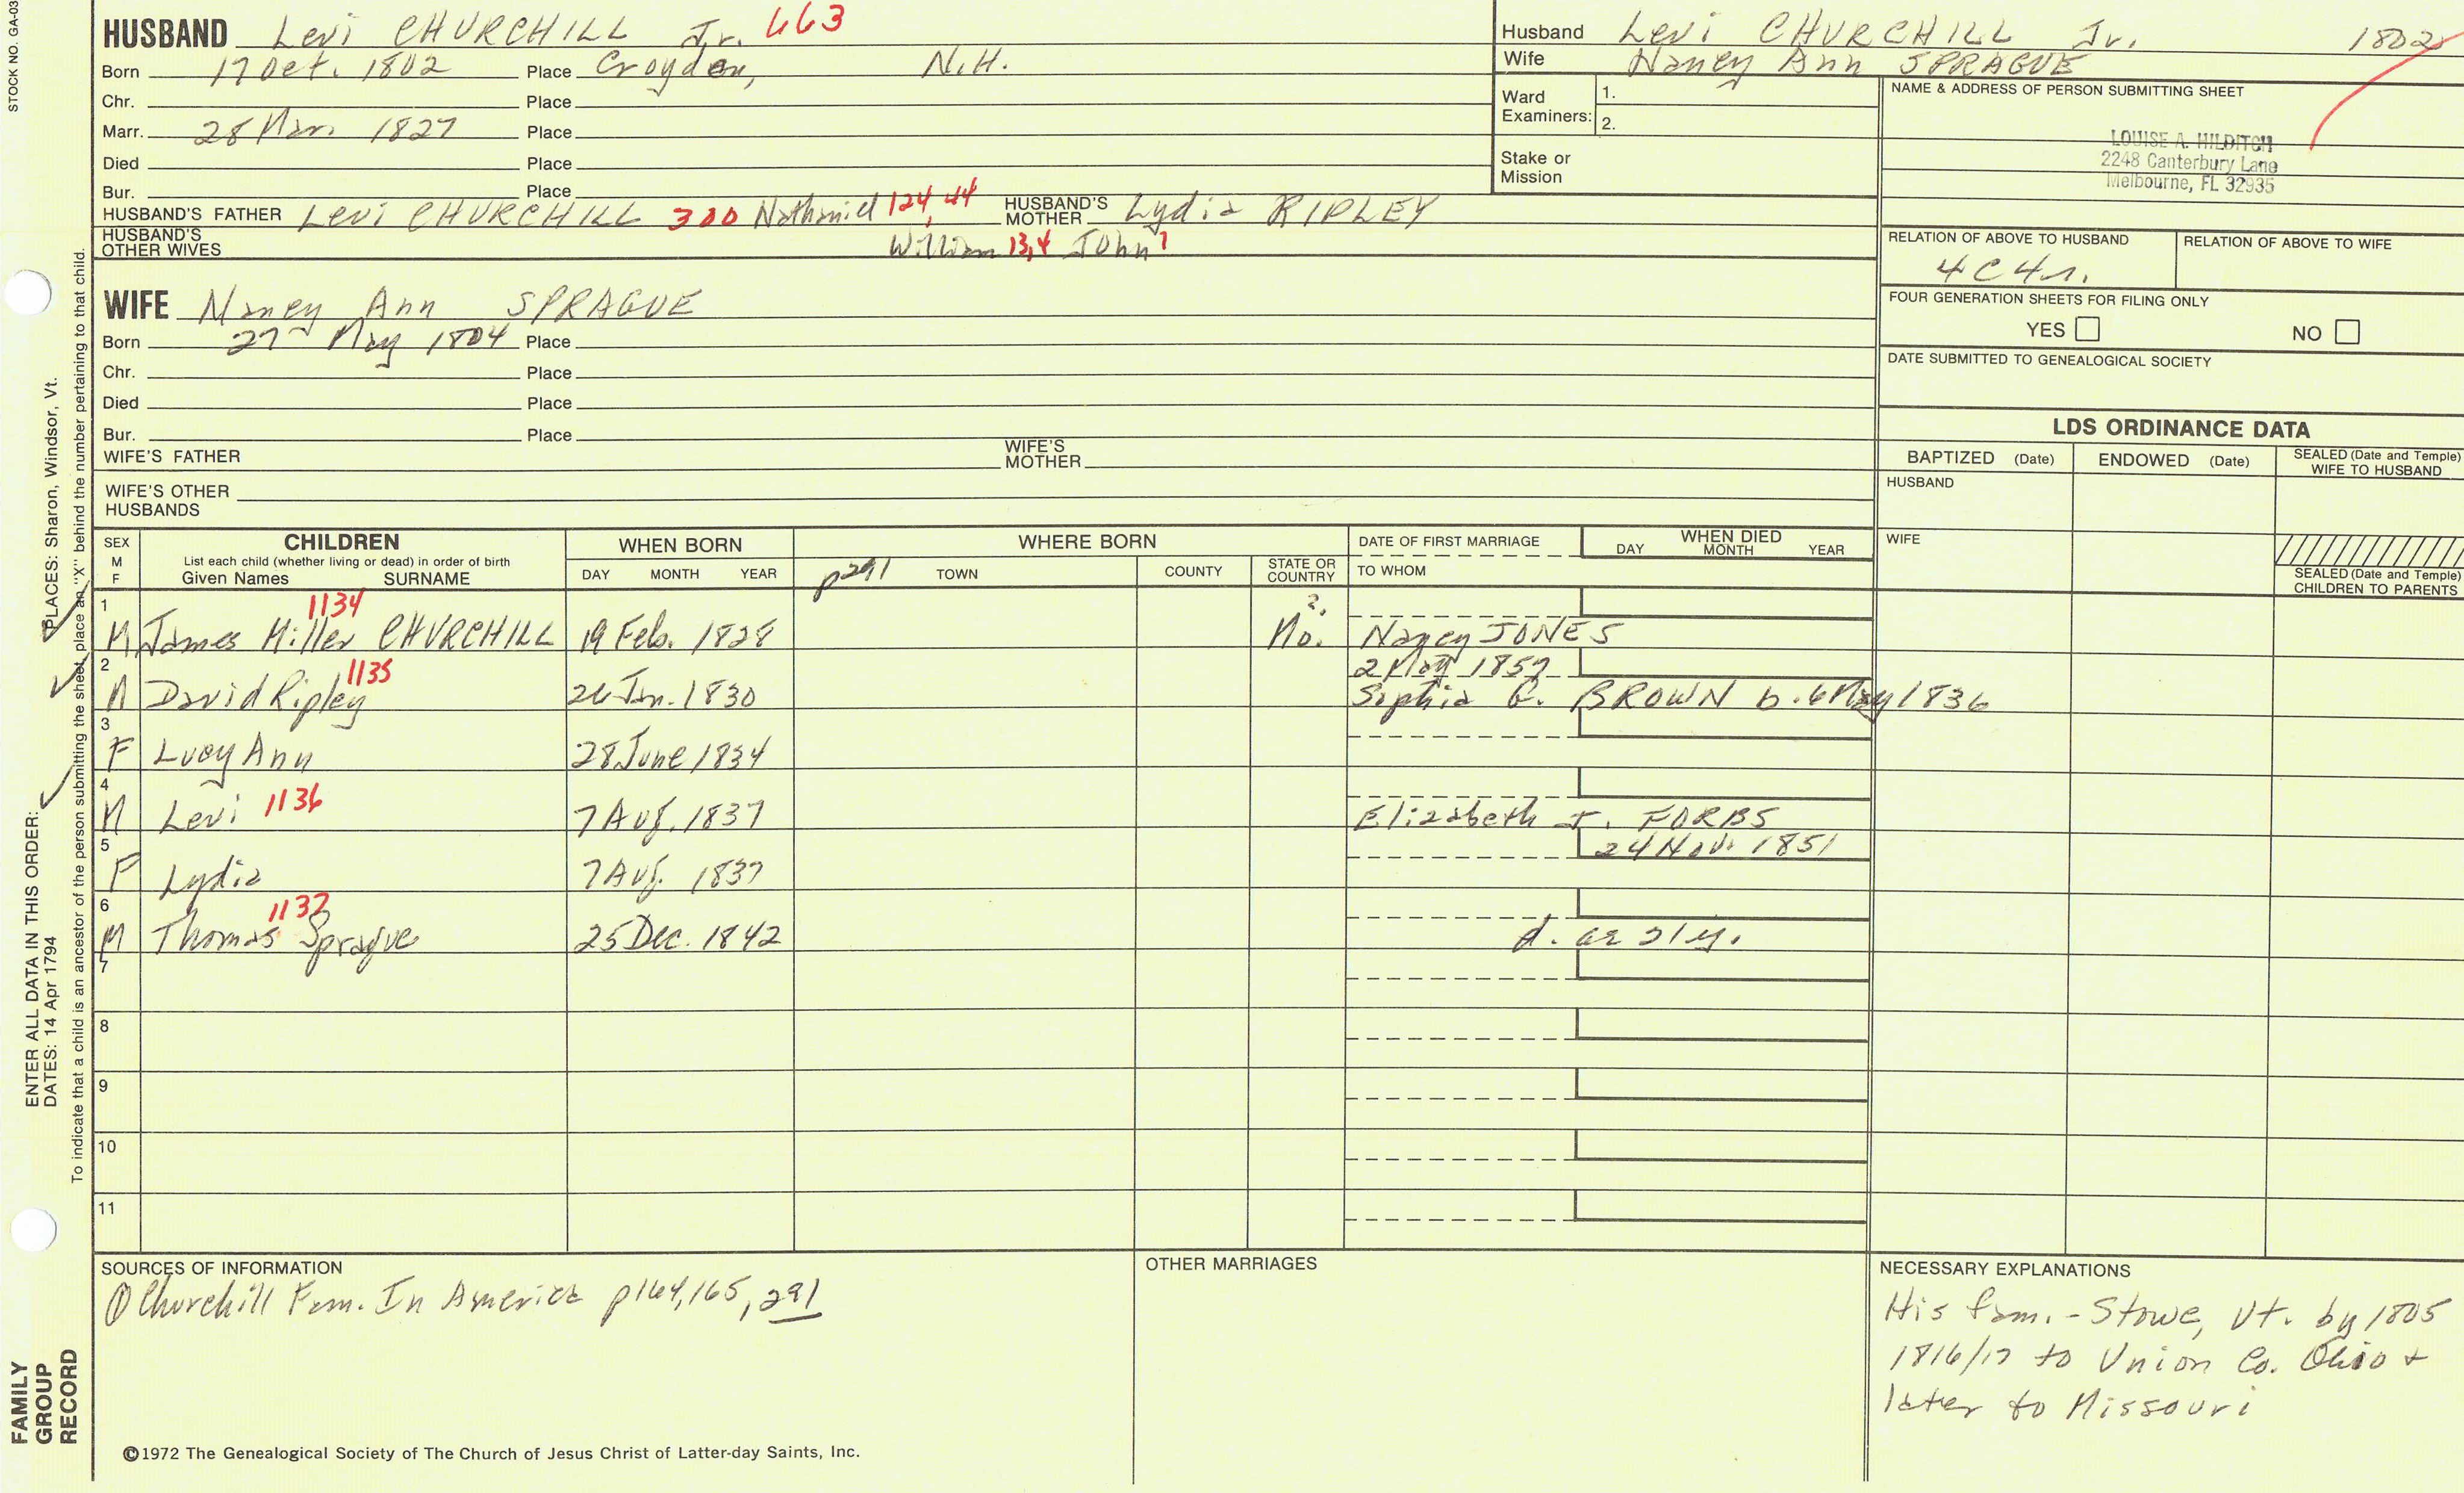 STOCK NO. GA-03
HUSBAND Levi CHURCHILL Jr. 663
Born 17 Oct. 1802 Place Croyden, N.H.
Chr. Place
Marr. 28 Mar. 1827 Place
Died Place
Bur. Place
HUSBAND'S FATHER Levi CHURCHILL 300 Nathaniel 124, 44 HUSBAND'S MOTHER Lydia RIPLEY
HUSBAND'S OTHER WIVES William 13,4 John 1
WIFE Nancy Ann SPRAGUE
Born 27 May 1804 Place
Chr. Place
Died Place
Bur. Place
WIFE'S FATHER WIFE'S MOTHER
WIFE'S OTHER HUSBANDS
Husband Levi CHURCHILL Jr. 1802
Wife Nancy Ann SPRAGUE
Ward Examiners: 1.
2.
Stake or Mission
NAME & ADDRESS OF PERSON SUBMITTING SHEET
LOUISE A. HILDITCH
2248 Canterbury Lane
Melbourne, FL 32935
RELATION OF ABOVE TO HUSBAND RELATION OF ABOVE TO WIFE
4C4r.
FOUR GENERATION SHEETS FOR FILING ONLY
YES NO
DATE SUBMITTED TO GENEALOGICAL SOCIETY
LDS ORDINANCE DATA
BAPTIZED (Date) ENDOWED (Date) SEALED (Date and Temple) WIFE TO HUSBAND
HUSBAND
WIFE
SEALED (Date and Temple) CHILDREN TO PARENTS
SEX M F CHILDREN WHEN BORN WHERE BORN DATE OF FIRST MARRIAGE WHEN DIED
List each child (whether living or dead) in order of birth DAY MONTH YEAR
Given Names SURNAME DAY MONTH YEAR p291 TOWN COUNTY STATE OR COUNTRY TO WHOM
1 1134 ?,
M James Miller CHURCHILL 19 Feb. 1828 Mo. Nancy JONES
2 1135 2 May 1857
M David Ripley 26 Jan. 1830 Sophia G. BROWN b. 6 May 1836
3
F Lucy Ann 28 June 1834
4
M Levi 1136 7 Aug. 1837 Elizabeth J. FORBS
5 24 Nov. 1851
F Lydia 7 Aug. 1837
6 1137
M Thomas Sprague 25 Dec. 1842 d. ae 21y.
7
8
9
10
11
SOURCES OF INFORMATION
① Churchill Fam. In America p164,165, 291
OTHER MARRIAGES
NECESSARY EXPLANATIONS
His fam. - Stowe, Vt. by 1805
1816/17 to Union Co. Ohio +
later to Missouri
©1972 The Genealogical Society of The Church of Jesus Christ of Latter-day Saints, Inc.
FAMILY GROUP RECORD
ENTER ALL DATA IN THIS ORDER:
DATES: 14 Apr 1794
PLACES: Sharon, Windsor, Vt.
To indicate that a child is an ancestor of the person submitting the sheet, place an "X" behind the number pertaining to that child.